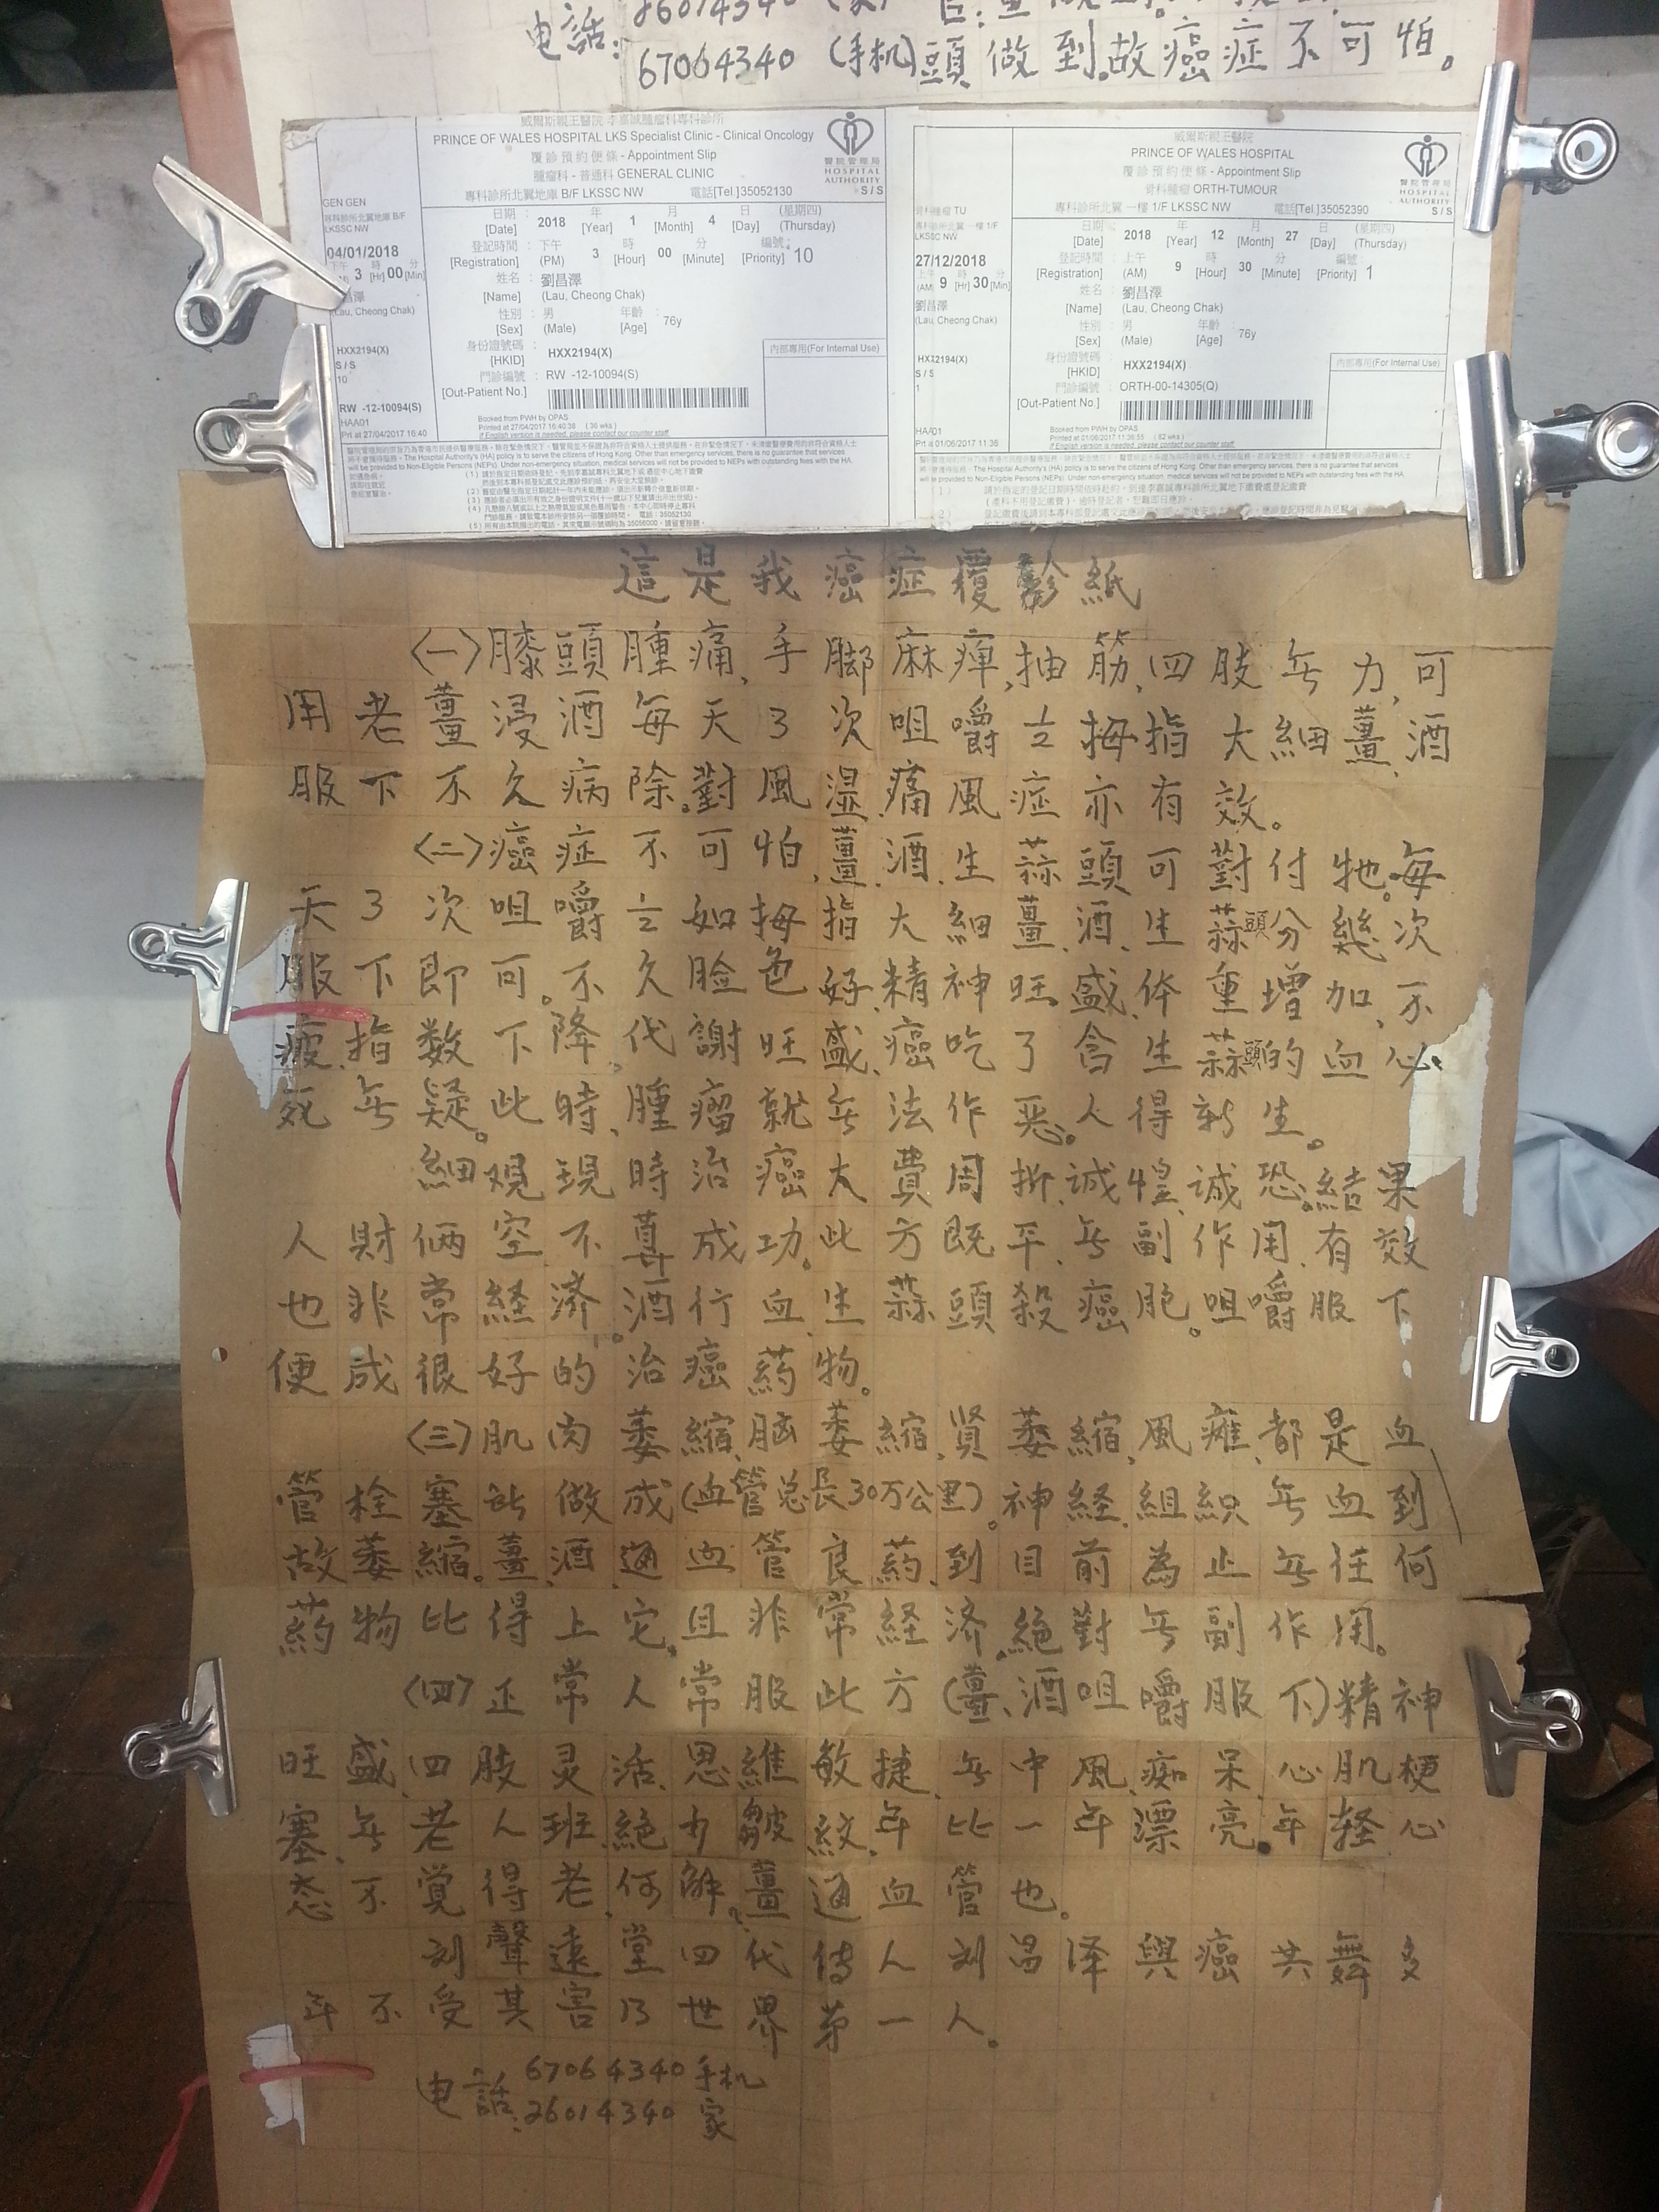 电話: 26014340 (家)
67064340 (手机) 頭做到。故癌症不可怕。
威爾斯親王醫院 李嘉誠腫瘤科專科診所
PRINCE OF WALES HOSPITAL LKS Specialist Clinic - Clinical Oncology
覆診預約便條 - Appointment Slip
腫瘤科 - 普通科 GENERAL CLINIC
專科診所北翼地庫 B/F LKSSC NW 電話[Tel.]35052130
醫院管理局
HOSPITAL
AUTHORITY
S / S
日期 : 2018 年 1 月 4 日 (星期四)
[Date] [Year] [Month] [Day] (Thursday)
登記時間 : 下午 3 時 00 分 編號 : 10
[Registration] (PM) [Hour] [Minute] [Priority]
姓名 : 劉昌澤
[Name] (Lau, Cheong Chak)
性別 : 男 年齡 : 76y
[Sex] (Male) [Age]
身份證號碼 : HXX2194(X)
[HKID]
內部專用(For Internal Use)
門診編號 : RW -12-10094(S)
[Out-Patient No.]
Booked from PWH by OPAS
Printed at 27/04/2017 16:40:38 ( 36 wks )
If English version is needed, please contact our counter staff
GEN GEN
專科診所北翼地庫 B/F
LKSSC NW
04/01/2018
下午 3 時 00 分
3 [Hr] 00 [Min]
劉昌澤
(Lau, Cheong Chak)
HXX2194(X)
S / S
10
RW -12-10094(S)
HAA01
Prt at 27/04/2017 16:40
威爾斯親王醫院
PRINCE OF WALES HOSPITAL
覆診預約便條 - Appointment Slip
骨科腫瘤 ORTH-TUMOUR
專科診所北翼 一樓 1/F LKSSC NW 電話[Tel.]35052390
醫院管理局
HOSPITAL
AUTHORITY
S / S
日期 : 2018 年 12 月 27 日 (星期四)
[Date] [Year] [Month] [Day] (Thursday)
登記時間 : 上午 9 時 30 分 編號 : 1
[Registration] (AM) [Hour] [Minute] [Priority]
姓名 : 劉昌澤
[Name] (Lau, Cheong Chak)
性別 : 男 年齡 : 76y
[Sex] (Male) [Age]
身份證號碼 : HXX2194(X)
[HKID]
內部專用(For Internal Use)
門診編號 : ORTH-00-14305(Q)
[Out-Patient No.]
Booked from PWH by OPAS
Printed at 01/06/2017 11:36:55 ( 82 wks )
If English version is needed, please contact our counter staff
骨科腫瘤 TU
專科診所北翼 一樓 1/F
LKSSC NW
27/12/2018
上午 9 時 30 分
(AM) 9 [Hr] 30 [Min]
劉昌澤
(Lau, Cheong Chak)
HXX2194(X)
S / S
1
HAA01
Prt at 01/06/2017 11:36
這是我癌症覆診紙
(一)膝頭腫痛、手脚麻痺、抽筋、四肢無力,可
用老薑浸酒每天3次咀嚼½拇指大細薑、酒
服下不久病除。對風濕、痛風症亦有效。
(二)癌症不可怕、薑、酒、生蒜頭可對付牠。每
天3次咀嚼½如拇指大細薑、酒、生蒜頭分幾次
服下即可。不久臉色好、精神旺盛、体重增加、不
疲、指数下降、代謝旺盛、癌吃了含生蒜頭的血必
死無疑。此時、腫瘤就無法作惡。人得新生。
細观現時治癌大費周折、誠惶誠恐。結果
人財倆空、不算成功。此方既平、無副作用、有效
也非常経済。酒行血、生蒜頭殺癌胞。咀嚼服下
便成很好的治癌葯物。
(三)肌肉萎縮、脑萎縮、腎萎縮、風癱、都是血
管栓塞所做成(血管总長30万公里)。神経、組織無血到
故萎縮。薑、酒、通血管良葯、到目前為止無任何
葯物比得上它。且非常経済、絕對無副作用。
(四)正常人常服此方(薑、酒咀嚼服下)精神
旺盛、四肢灵活、思維敏捷、無中風、痴呆、心肌梗
塞、無老人斑、絕少皺紋、年比一年漂亮。年輕心
态、不覚得老、何解、薑通血管也。
刘聲遠堂四代傳人刘昌泽與癌共舞多
年不受其害乃世界第一人。
电話: 67064340 手机
26014340 家